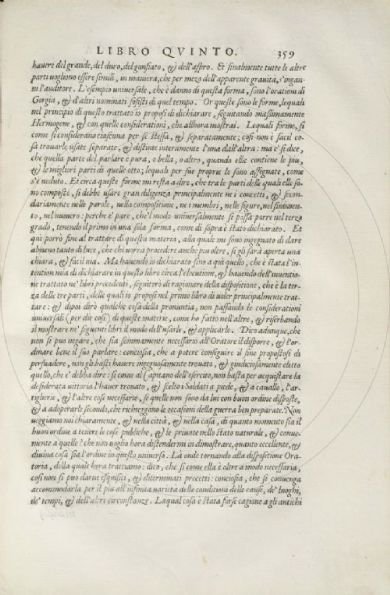 LIBRO QVINTO. 359
hauere del grande, del duro, del gonfiato, & dell'aspro. Et finalmente tutte le altre
parti uogliono essere simili, in maniera, che per mezo dell'apparente grauità, s'ingan-
ni l'auditore. L'esempio uniuersale, che è danno di questa forma, sono l'orationi di
Gorgia, & d'altri nominati sofisti di quel tempo. Or queste sono le forme, lequali
nel principio di questo trattato io proposi di dichiarare, seguitando massimamente
Hermogene, & con quelle considerationi, che allhora mostrai. Lequali forme, si
come si considerano ciascuna per se stessa, & separatamente; così non è facil co-
sa trouarle usate separate, & distinte interamente l'una dall'altra: ma e' si dice,
che quella parte del parlare è pura, o bella, o altro, quando elle contiene le più,
& le migliori parti di quelle otto, lequali per sue proprie le sono assegnate, come
s'è ueduto. Et circa queste forme mi resta a dire, che tra le parti delle quali elle so-
no composte, si debbe usare gran diligenza principalmente ne i concetti, & secon-
dariamente nelle parole, nella compositione, ne i membri, nelle figure, nel finimen-
to, nel numero: perche e' pare, che'l modo uniuersalmente si possa porre nel terzo
grado, tenendo il primo in una sola forma, come di sopra è stato dichiarato. Et
qui porrò fine al trattare di questa materia, alla quale mi sono ingegnato di dare
almeno tanto di luce, che chi uorrà procedere anche più oltre, si gli sarà aperta una
chiara, & facil uia. Ma hauendo io dichiarato sino a quì quello, che è stata l'in-
tention mia di dichiarare in questo libro circa l'elocutione, & hauendo dell'inuentio-
ne trattato ne' libri precedenti, seguiterò di ragionare della dispositione, che è la ter-
za delle tre parti, delle quali io proposi nel primo libro di uoler principalmente trat-
tare: & dipoi dirò qualche cosa della pronontia, non passando le considerationi
uniuersali (per dir così) di queste materie, come ho fatto nell'altre, & riserbando
il mostrare ne' seguenti libri il modo dell'usarle, & applicarle. Dico adunque, che
non si può negare, che sia sommamente necessario all'Oratore il disporre, & l'or-
dinare bene il suo parlare: conciosia, che a potere conseguire il fine propostosi di
persuadere, non gli basti hauere ingegnosamente trouato, & giudiciosamente eletto
quello, che e' debba dire: si come al Capitano dell'esercito, non basta per acquistare la
desiderata uittoria l'hauer trouato, & scelto i Soldati a piede, & a cauallo, l'ar-
tiglieria, & l'altre cose necessarie, se quelle non sono da lui con buon ordine disposte,
& a adoperarle secondo, che richieggono le occasioni della guerra ben preparate. Non
ueggiamo noi chiaramente, & nella città, & nella casa, di quanto momento sia il
buon ordine a tenere le cose publiche, & le priuate nello stato naturale, & conue-
niente a quelle? che non uoglio hora distendermi in dimostrare, quanto eccellente, &
diuina cosa sia l'ordine in questo uniuerso. Là onde tornando alla dispositione Ora-
toria, della quale hora trattiamo; dico, che si come ella è oltre a modo necessaria,
così non si può darne esquisiti, & determinati precetti: conciosia, che si conuenga
accommodarla per il più all'infinita uarietà delle conditioni delle cause, de' luoghi,
de' tempi, & dell'altre circunstanze. La qual cosa è stata forse cagione a gli antichi